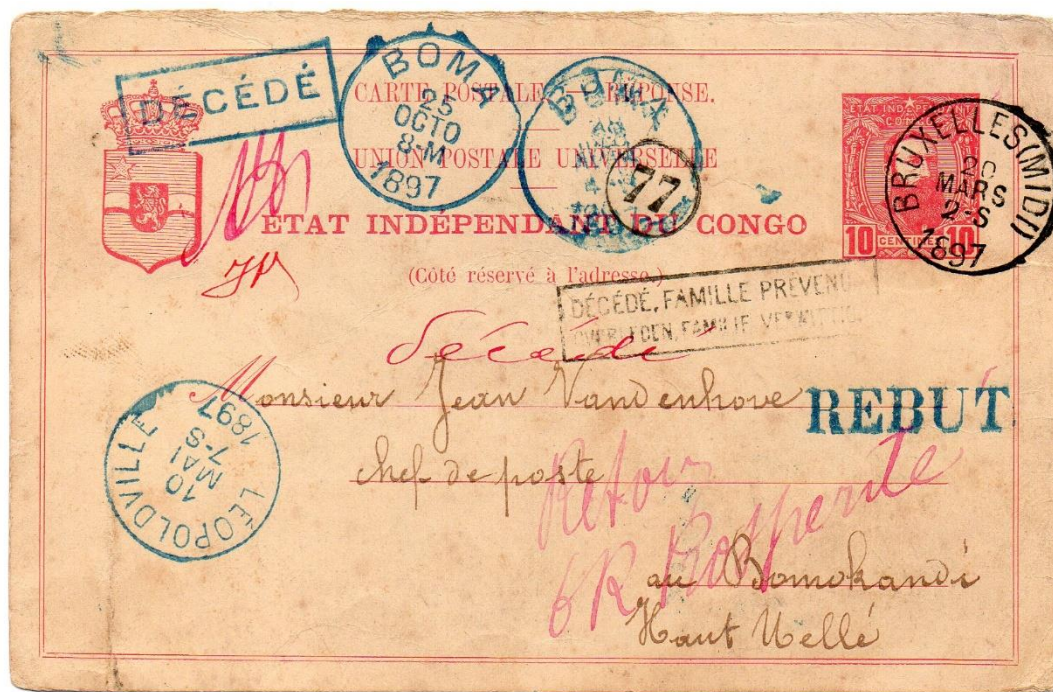 DÉCÉDÉ
BOMA
25
OCTO
8-M
1897
BOMA
77
CARTE POSTALE — RÉPONSE.
UNION POSTALE UNIVERSELLE
ETAT INDÉPENDANT DU CONGO
(Côté réservé à l'adresse.)
ETAT INDÉPENDANT
CONGO
10 CENTIMES 10
BRUXELLES(MIDI)
20
MARS
2-S
1897
DÉCÉDÉ, FAMILLE PRÉVENU
OVERLEDEN, FAMILIE
décédé
Monsieur Jean Vandenhove
REBUT
chef de poste
Retour
6 R Prosperite
au Bomokandi
Haut Uellé
LEOPOLDVILLE
10
MAI
7-S
1897